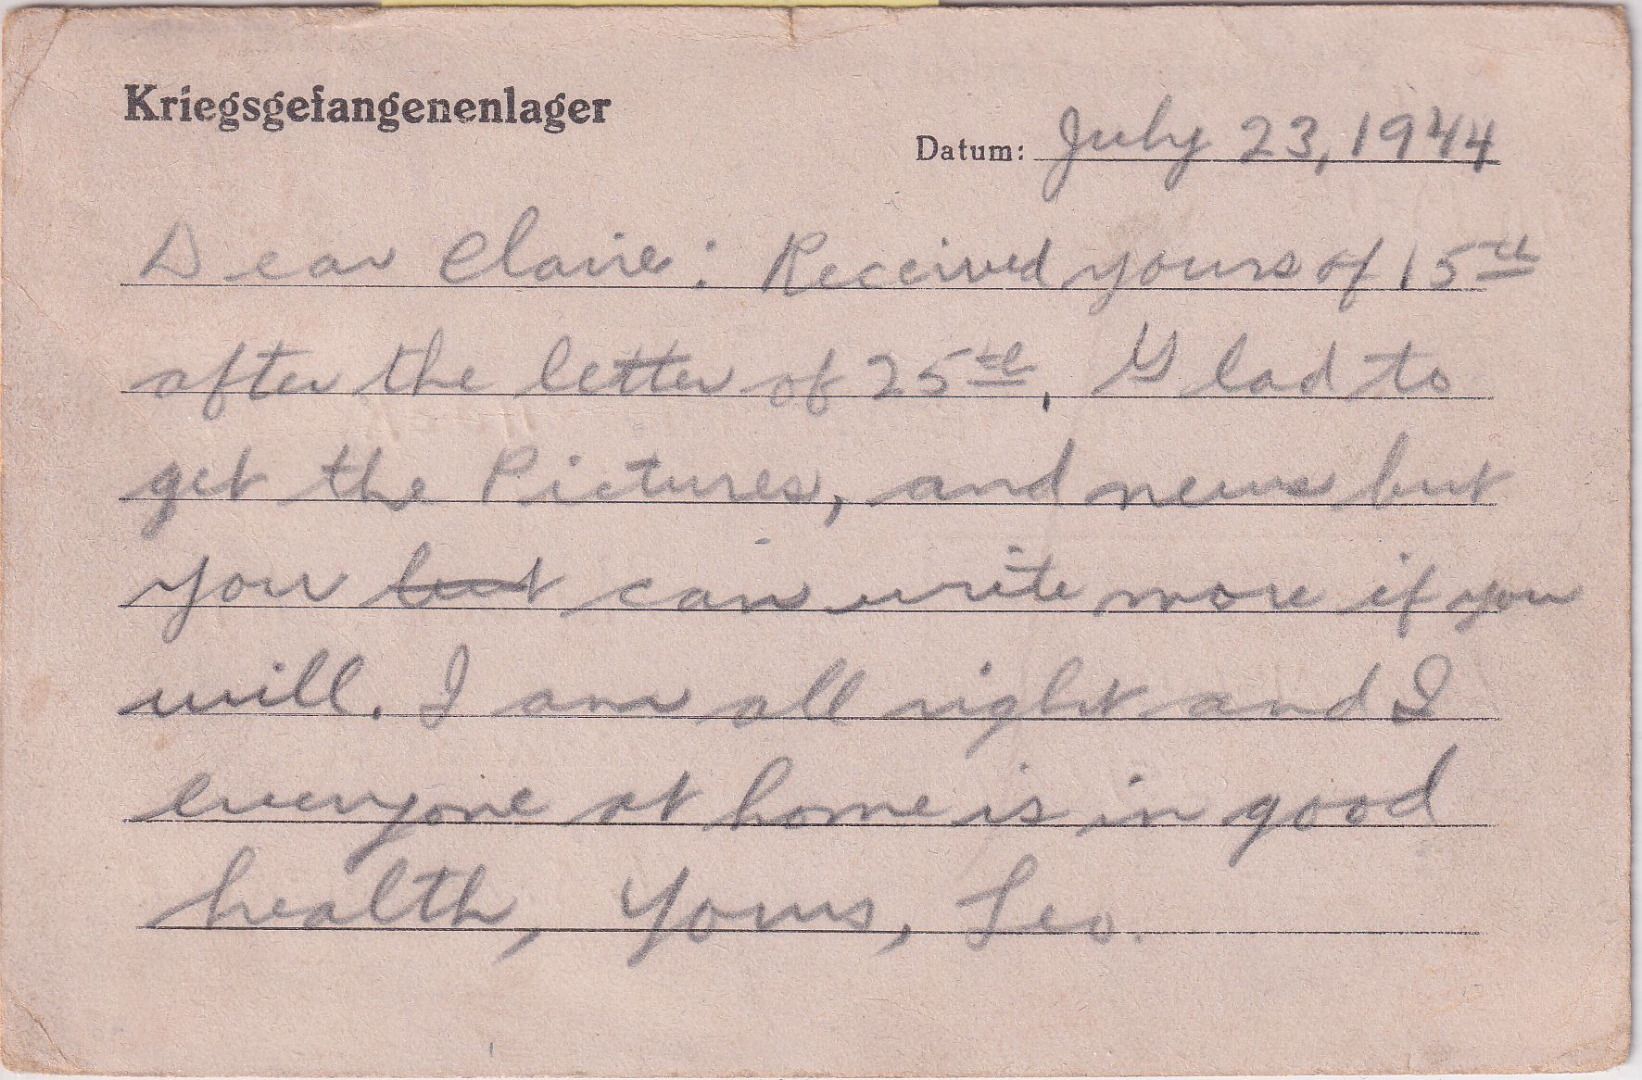 Kriegsgefangenenlager
Datum: July 23, 1944
Dear Claire: Received yours of 15th
after the letter of 25th. Glad to
get the Pictures, and news but
you but can write more if you
will. I am all right and I
everyone at home is in good
health, Yours, Leo.